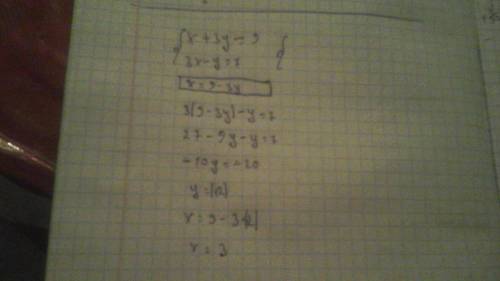 x + 3y = 9
3x - y = 7
x = 9 - 3y
3(9 - 3y) - y = 7
27 - 9y - y = 7
-10y = -20
y = |2|
x = 9 - 3·|2|
x = 3